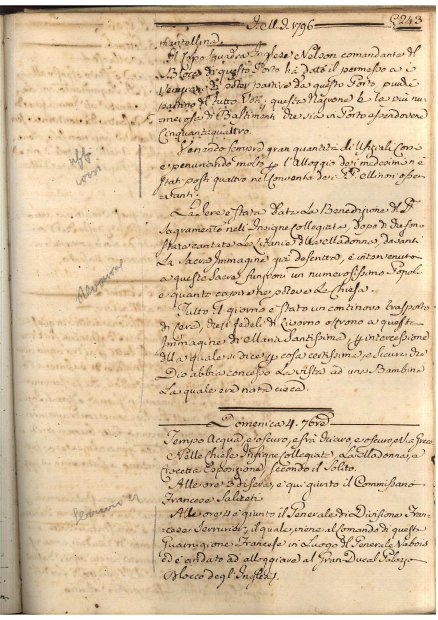 A. M. D. 1796 243
mantellina.
Il Capo Squadra Inglese Nelson comandante del
Blocco di questo Porto há dato il permesso a i
di poter partire da questo Porto
questa Nazione è la piu nu
merosa di Bastimenti che sia in Porto essendovene
Cinquantiquattro.
Venendo sempre gran quantità di Ufiziali Corsi
e penuriando molto l'Alloggio dei medesimi è
stati posti quattro nel Convento dei P.P. Minori Osser
vatanti.
La Sera è stata data la Benedizione del SS.
Sagramento nell'Insigne Collegiata, dopo di che sono
state cantate le della Madonna, davanti
la Sacra Immagine già, è intervenuto
a queste Sacre funzioni un numerosissimo Popolo
e quanto capire poteva la Chiesa.
Tutto il giorno è stato un continovo trasporto
di Cera, che i fedeli di Livorno offrono a questa
Immagine di Maria Santissima intercessione
della quale si dice cosa certissima, e sicura che
Dio abbia concesso la vista ad una Bambina
la quale era nata cieca.
Domenica 4. 7bre
Tempo Acqua, e oscuro, e frà chiaro, e oscuro,
Nelle Chiese Insigne Collegiata, la Madonna, e
Crocetta Esposizione, secondo il Solito.
Alle ore 3 di sera, è qui giunto il Commissario
Francese Saliceti
Alle ore 4 è giunto il Generale di Divisione Fran
cese Serrurier, il quale viene al comando di questa
Guarnigione Francese in Luogo del Generale Vabois
ed è andato ad alloggiare al Gran Ducal Palazzo
Blocco degl'Inglesi
uff
corsi
Serrurier